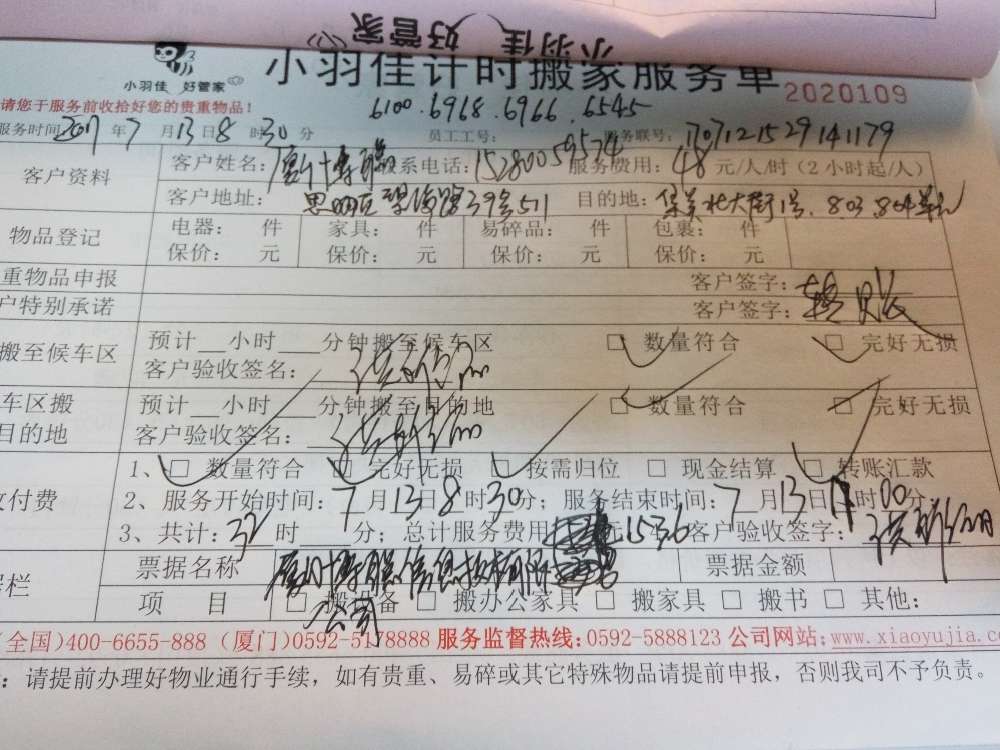 小羽佳 好管家
小羽佳 好管家
小羽佳计时搬家服务单 2020109
请您于服务前收拾好您的贵重物品！
6100.6918.6966.6545
服务时间2017年7月13日8时30分 员工工号： 服务联号：170712152914 1179
客户资料 客户姓名：厦门博聪 联系电话：15280059574 服务费用：48元/人/时（2小时起/人）
客户地址：思明区 39号511 目的地：北大街1号.803.804单元
物品登记 电器： 件 家具： 件 易碎品： 件 包裹： 件
保价： 元 保价： 元 保价： 元 保价： 元
重物品申报 客户签字：
户特别承诺 客户签字：转账
搬至候车区 预计__小时___分钟搬至候车区 □ 数量符合 □ 完好无损
客户验收签名：
车区搬 预计__小时___分钟搬至目的地 □ 数量符合 □ 完好无损
目的地 客户验收签名：
1、□ 数量符合 □ 完好无损 □ 按需归位 □ 现金结算 □ 转账汇款
收付费 2、服务开始时间：7月13日8时30分；服务结束时间：7月13日17时00分
3、共计：32时 分；总计服务费用 元1536 客户验收签字：
据栏 票据名称 厦门博聪信息技术有限 公司 票据金额
项 目 □ 搬设备 □ 搬办公家具 □ 搬家具 □ 搬书 □ 其他：
(全国)400-6655-888 (厦门)0592-5178888 服务监督热线：0592-5888123 公司网站：www.xiaoyujia.c
：请提前办理好物业通行手续，如有贵重、易碎或其它特殊物品请提前申报，否则我司不予负责。